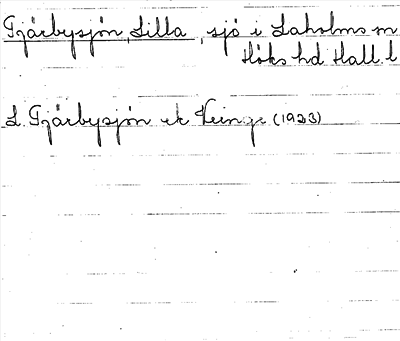 Tjärbysjön, Lilla, sjö i Laholms sn
Höks hd Hall. l
L. Tjärbysjön ek Veinge (1923)